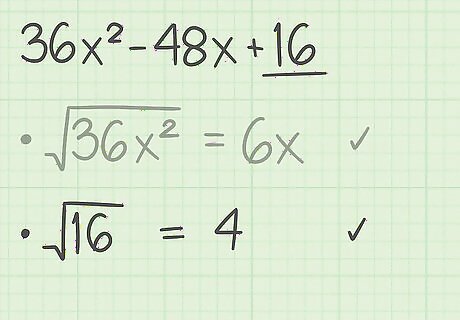 36x² - 48x + 16
• √36x² = 6x ✓
• √16 = 4 ✓